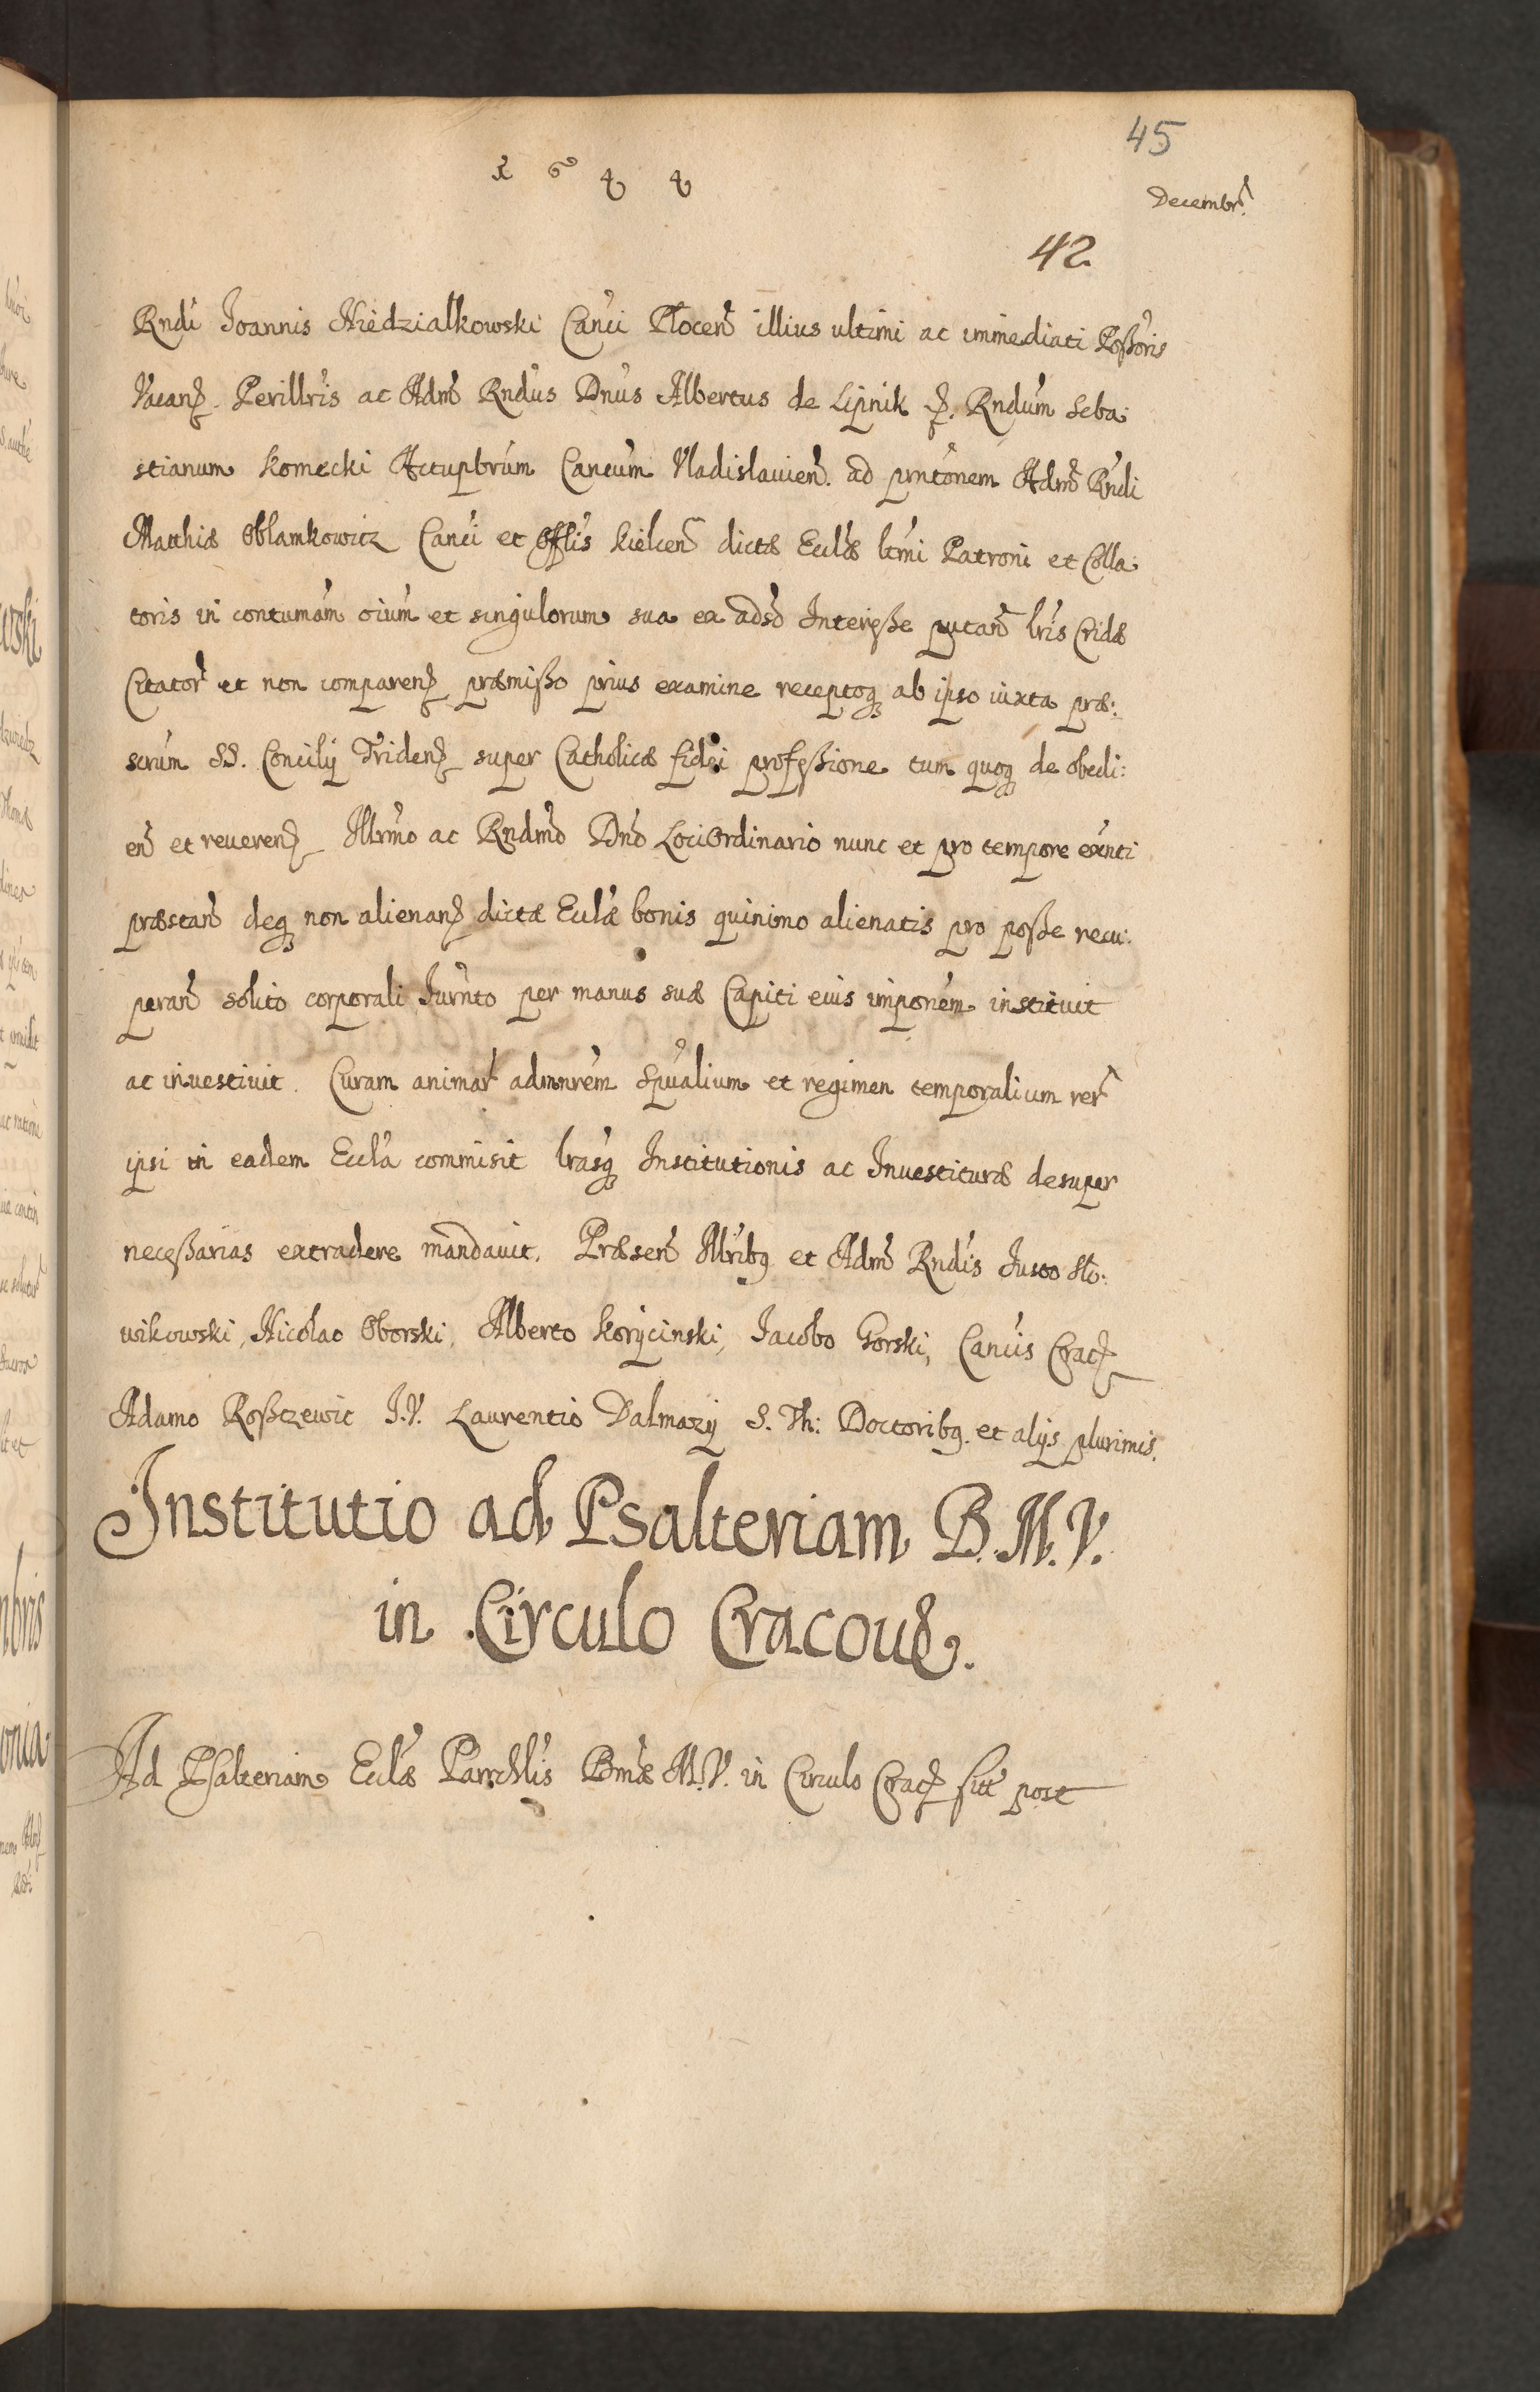 45
1 6 4 4
Decembr.
42
Rndi Joannis Niedzialkowski Canci Plocen illius ultimi ac immediati Poßoris
Vacan. Perillris ac Adm Rndus Dnus Albertus de Lipnik &. Rndum Seba:
stianum Komecki Actuprbrum Cancum Vladislauien. ad pntonem Adm Rndi
Matthiæ Oblamkowicz Canci et Offlis Kielcen dictæ Ecclæ ltmi Patroni et Colla:
toris in contumam oium et singulorum sua ea adso Intereße putan lris Cridæ
Citator et non comparen præmißo prius examine receptoq ab ipso iuxta præ:
scrum SS. Concilij Triden super Catholicæ fidei profeßione tum quoq de obedi:
en et reueren Illrmo ac Rndmo Dno Loci Ordinario nunc et pro tempore exnti
præstan deq non alienan dictæ Ecclæ bonis quinimo alienatis pro poße recu:
peran solito corporali Jurnto per manus suæ Capiti eius imponem instituit
ac inuestiuit. Curam animar admnrem Spualium et regimen temporalium rer
ipsi in eadem Eccla commisit lrasq Institutionis ac Inuestituræ desuper
neceßarias extradere mandauit. Præsen Illribq et Adm Rndis Justo Slo:
wikowski, Nicolao Oborski, Alberto Korycinski, Jacobo Gorski, Cancis Crac
Adamo Roßczewic J.V. Laurentio Dalmazy S. Th: Doctoribq. et alijs plurimis.
Institutio ad Psalteriam B.M.V.
in Circulo Cracouæ.
Ad Psalteriam Ecclæ Parrchlis Bmæ M.V. in Circulo Crac sit post